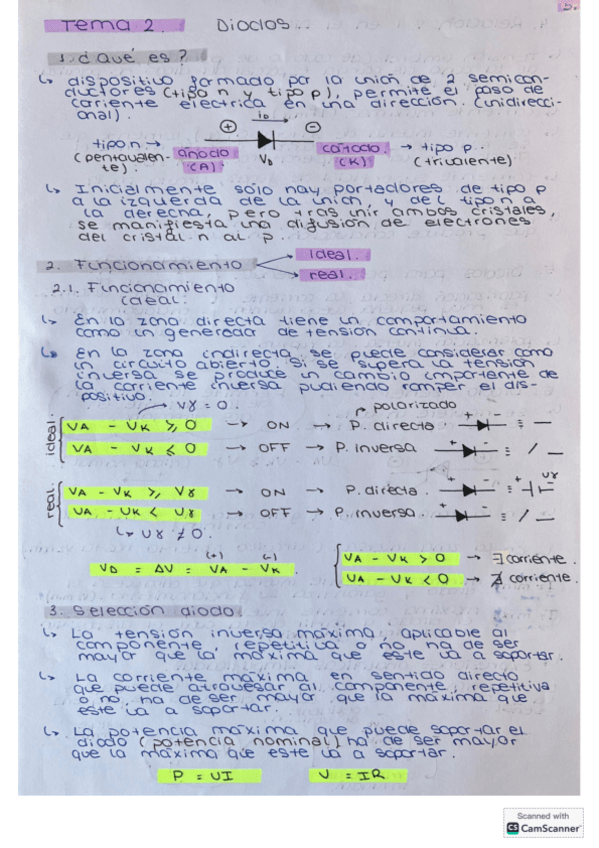 Tema 2. Diodos..
1. ¿Qué es?
↳ dispositivo formado por la unión de 2 semicon-
ductores (tipo n y tipo p), permite el paso de
corriente eléctrica en una dirección. (unidirecci-
onal).
iD
+ −
tipo n → ánodo cátodo → tipo p.
(pentavalen- (A) VD (K) (trivalente)
te).
↳ Inicialmente sólo hay portadores de tipo p
a la izquierda de la unión, y del tipo n a
la derecha, pero tras unir ambos cristales,
se manifiesta una difusión de electrones
del cristal n al p.
2. Funcionamiento ideal..
real..
2.1. Funcionamiento
ideal:
↳ En la zona directa tiene un comportamiento
como un generador de tensión continua.
↳ En la zona indirecta se puede considerar como
un circuito abierto, si se supera la tensión
inversa se produce un cambio importante de
la corriente inversa pudiendo romper el dis-
positivo.
Vγ = 0. polarizado
ideal. VA - VK ≥ 0 → ON → P. directa + - ≡ —
VA - VK < 0 → OFF → P. inversa + - ≡ / —
real. VA - VK ≥ Vγ → ON → P. directa. + - ≡ Vγ
VA - VK < Vγ → OFF → P. inversa. + - ≡ / —
↳ Vγ ≠ 0.
(+) (-)
VD = ΔV = VA - VK
VA - VK > 0 → ∃ corriente.
VA - VK < 0 → ∄ corriente.
3. Selección diodo.
↳ La tensión inversa máxima, aplicable al
componente, repetitiva o no, ha de ser
mayor que la máxima que este va a soportar.
↳ La corriente máxima en sentido directo
que puede atravesar al componente, repetitiva
o no, ha de ser mayor que la máxima que
este va a soportar.
↳ La potencia máxima que puede soportar el
diodo (potencia nominal) ha de ser mayor
que la máxima que este va a soportar.
P = UI V = IR
Scanned with
CS CamScanner